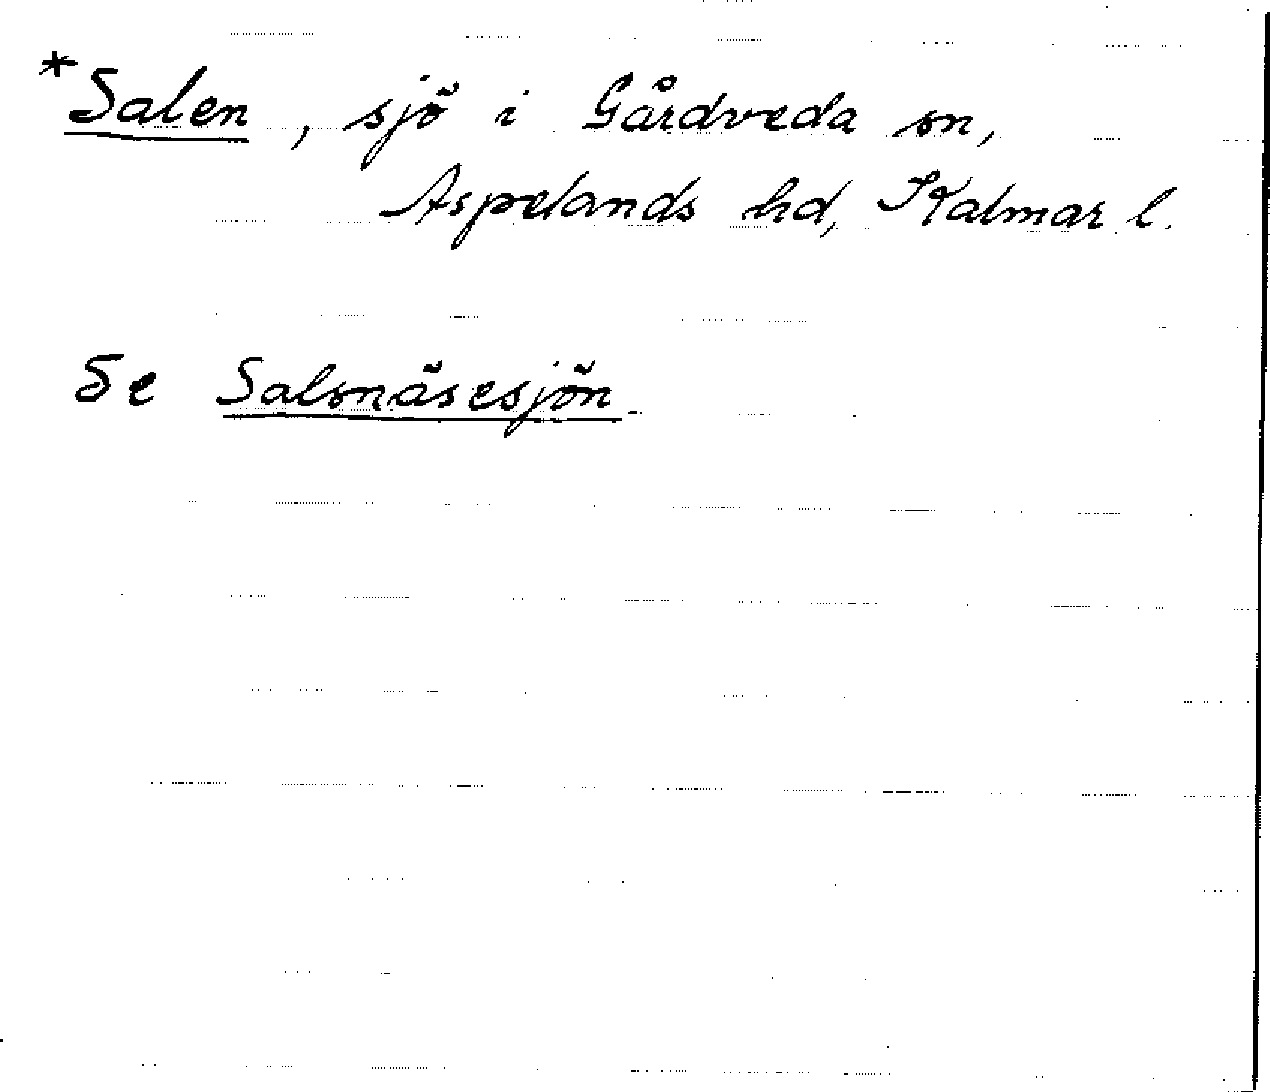 *Salen, sjö i Gårdveda sn,
Aspelands hd, Kalmar l.
Se Salsnäsesjön.